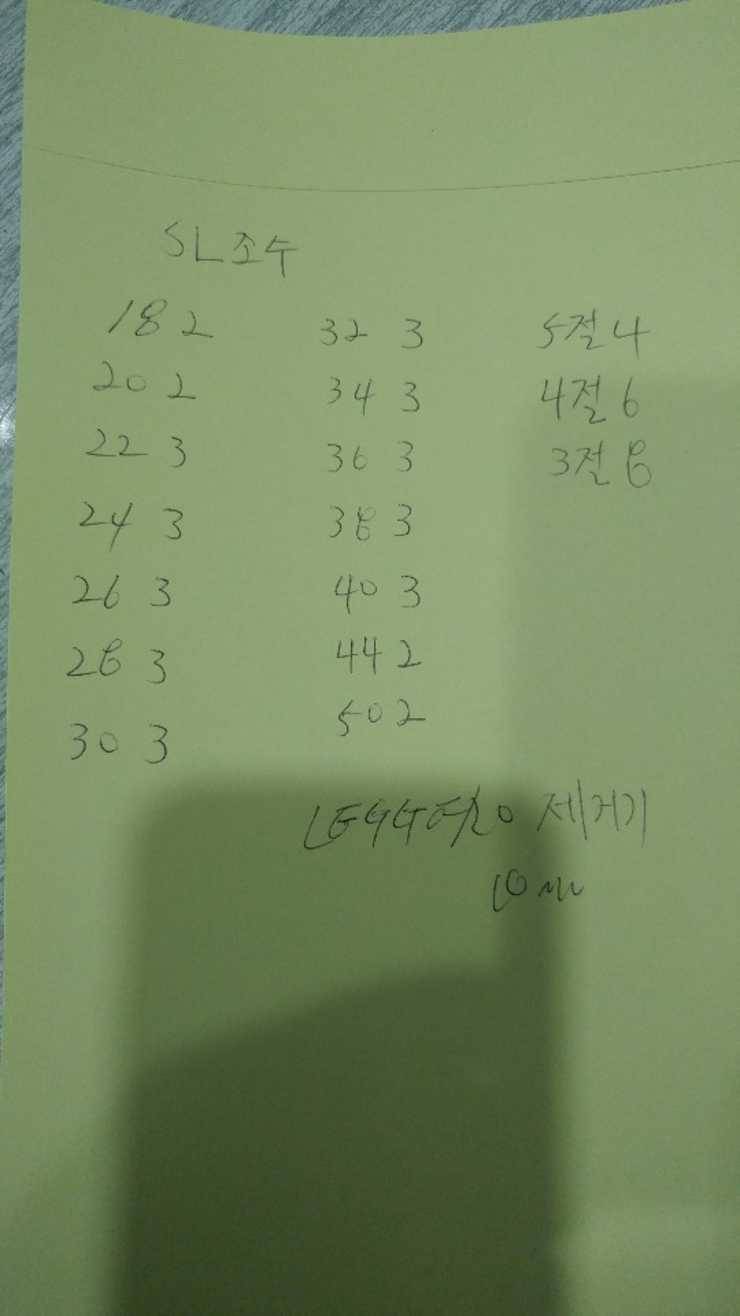 SL조수
18 2
20 2
22 3
24 3
26 3
28 3
30 3
32 3
34 3
36 3
38 3
40 3
44 2
50 2
5절 4
4절 6
3절 8
LEGGERO 제거기
10m